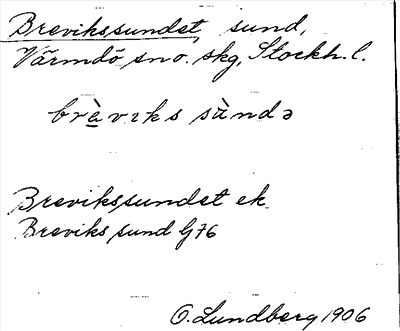 Brevikssundet, sund,
Värmdö sno. skg, Stockh. l.
brèvıks sùndə
Brevikssundet ek
Breviks sund G76
O. Lundberg 1906